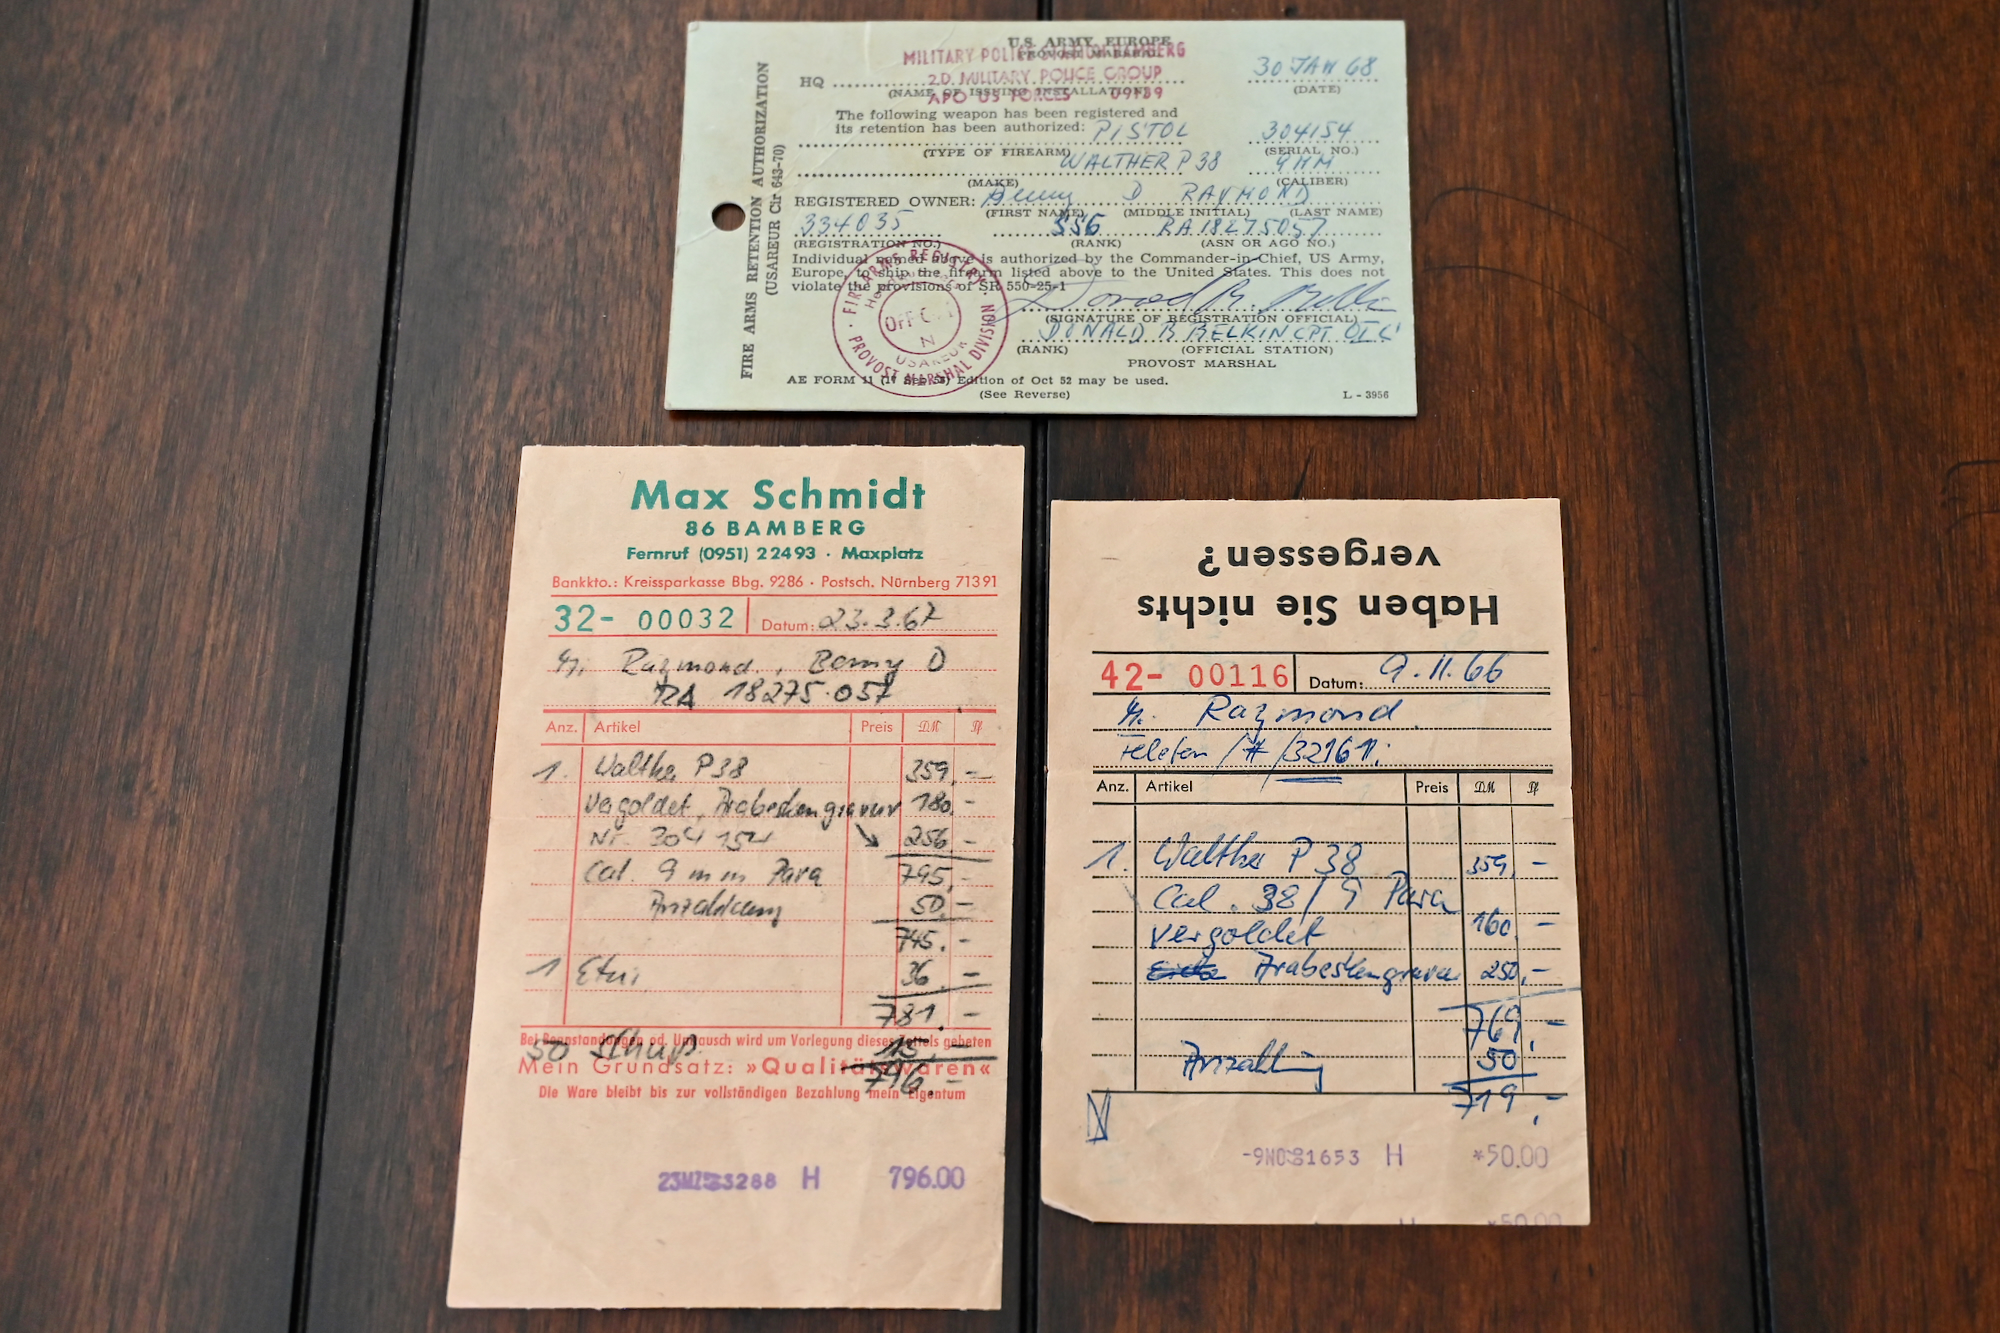 U.S. ARMY, EUROPE
PROVOST MARSHAL
MILITARY POLICE BAMBERG
2D MILITARY POLICE GROUP
APO US FORCES 09139
HQ
(NAME OF ISSUING INSTALLATION)
30 JAN 68
(DATE)
The following weapon has been registered and
its retention has been authorized: PISTOL
304154
(TYPE OF FIREARM)
(SERIAL NO.)
WALTHER P 38
9 MM
(MAKE)
(CALIBER)
REGISTERED OWNER: Benny D RAYMOND
(FIRST NAME) (MIDDLE INITIAL) (LAST NAME)
334035 SSG RA 18275057
(REGISTRATION NO.) (RANK) (ASN OR AGO NO.)
Individual named above is authorized by the Commander-in-Chief, US Army,
Europe, to ship the firearm listed above to the United States. This does not
violate the provisions of SR 550-25-1
(SIGNATURE OF REGISTRATION OFFICIAL)
DONALD R BELKIN CPT
(RANK) (OFFICIAL STATION)
PROVOST MARSHAL
AE FORM 11 Edition of Oct 52 may be used.
(See Reverse)
L - 3956
FIRE ARMS RETENTION AUTHORIZATION
(USAREUR Cir 643-70)
FIREARMS REGISTRY
PROVOST MARSHAL DIVISION
USAREUR
Max Schmidt
86 BAMBERG
Fernruf (0951) 22493 · Maxplatz
Bankkto.: Kreissparkasse Bbg. 9286 · Postsch. Nürnberg 71391
32- 00032 Datum: 23.3.67
Raymond, Benny D
RA 18275.057
Anz. Artikel Preis DM Pf
1. Walther P38 359,-
vergoldet, Arabeskengravur 180,-
Nr. 304 154 256,-
Cal. 9 mm Para 795,-
Anzahlung 50,-
745,-
1 Etui 36,-
781,-
Bei Beanstandungen od. Umtausch wird um Vorlegung dieses Zettels gebeten
50 Schuß 15,-
Mein Grundsatz: »Qualitätswaren«
796,-
Die Ware bleibt bis zur vollständigen Bezahlung mein Eigentum
3288 H 796.00
Haben Sie nichts
vergessen?
42- 00116 Datum: 9.11.66
Raymond
Telefon /#/32161.
Anz. Artikel Preis DM Pf
1. Walther P 38 359,-
Cal. 38/9 Para
vergoldet 160,-
Arabeskengravur 250,-
769,-
Anzahlung 50
719,-
1653 H *50.00
H *50.00